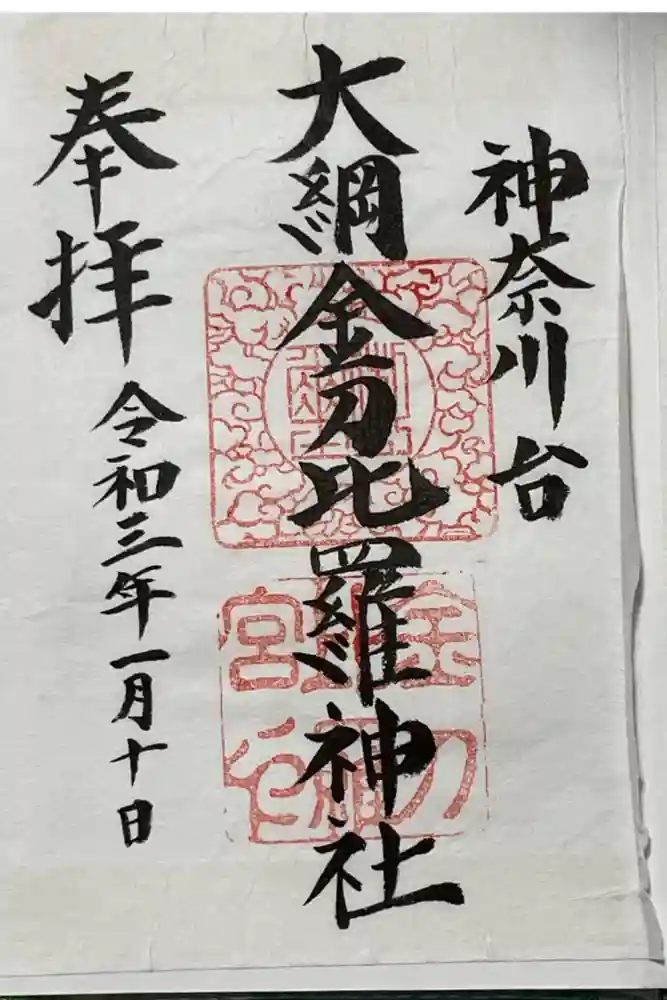 神奈川台
大綱金刀比羅神社
奉拝
令和三年一月十日